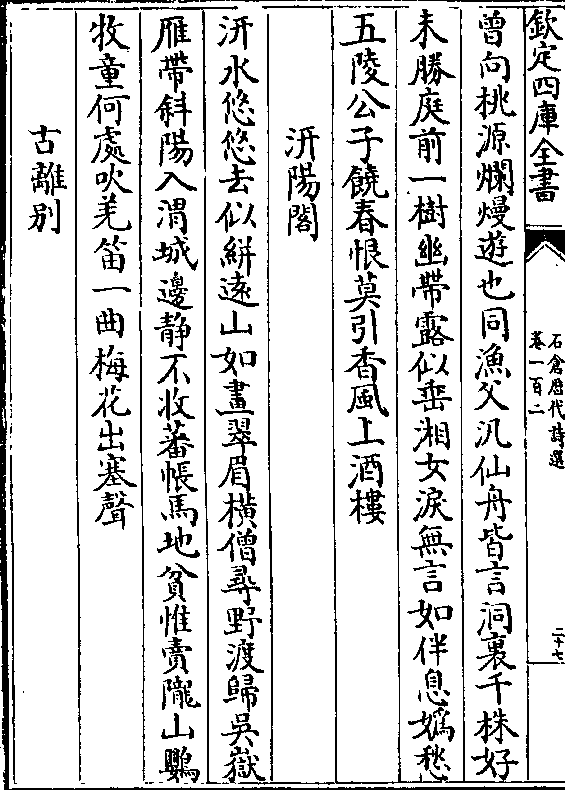 欽定四庫全書
石倉歷代詩選
卷一百二
二十七
曾向桃源爛熳遊也同漁父汎仙舟皆言洞裏千株好
未勝庭前一樹幽帶露似垂湘女淚無言如伴息媯愁
五陵公子饒春恨莫引香風上酒樓
汧陽閣
汧水悠悠去似絣遠山如畫翠眉橫僧尋野渡歸吳嶽
雁帶斜陽入渭城邊靜不收蕃帳馬地貧惟賣隴山鸚
牧童何處吹羌笛一曲梅花出塞聲
古離別